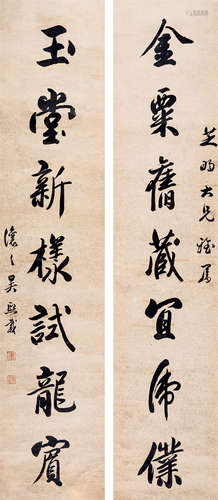 芝昉大兄雅屬
金粟舊藏宜佛業
玉堂新樣試龍賓
讓之吳熙載